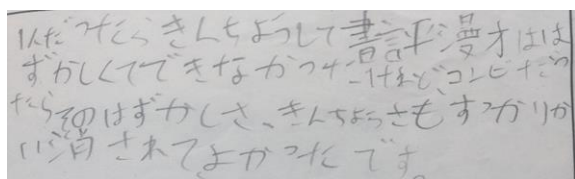 1人だったらきんちょうして書評漫才はは
ずかしくてできなかったけれど、コンビだっ
たらそのはずかしさ、きんちょうさもすっかりか
い消されてよかったです。